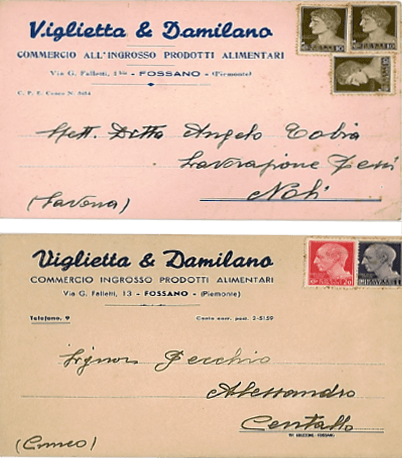 Viglietta & Damilano
COMMERCIO ALL'INGROSSO PRODOTTI ALIMENTARI
Via G. Falletti, 1 bis - FOSSANO - (Piemonte)
C. P. E. Cuneo N.
Spett. Ditta Angelo Tobia
Lavorazione
Noli
(Savona)
Viglietta & Damilano
COMMERCIO INGROSSO PRODOTTI ALIMENTARI
Via G. Falletti, 13 - FOSSANO - (Piemonte)
Telefono. 9 Conto corr. post. 2-5159
Signor Pecchio
Alessandro
Centallo
(Cuneo)